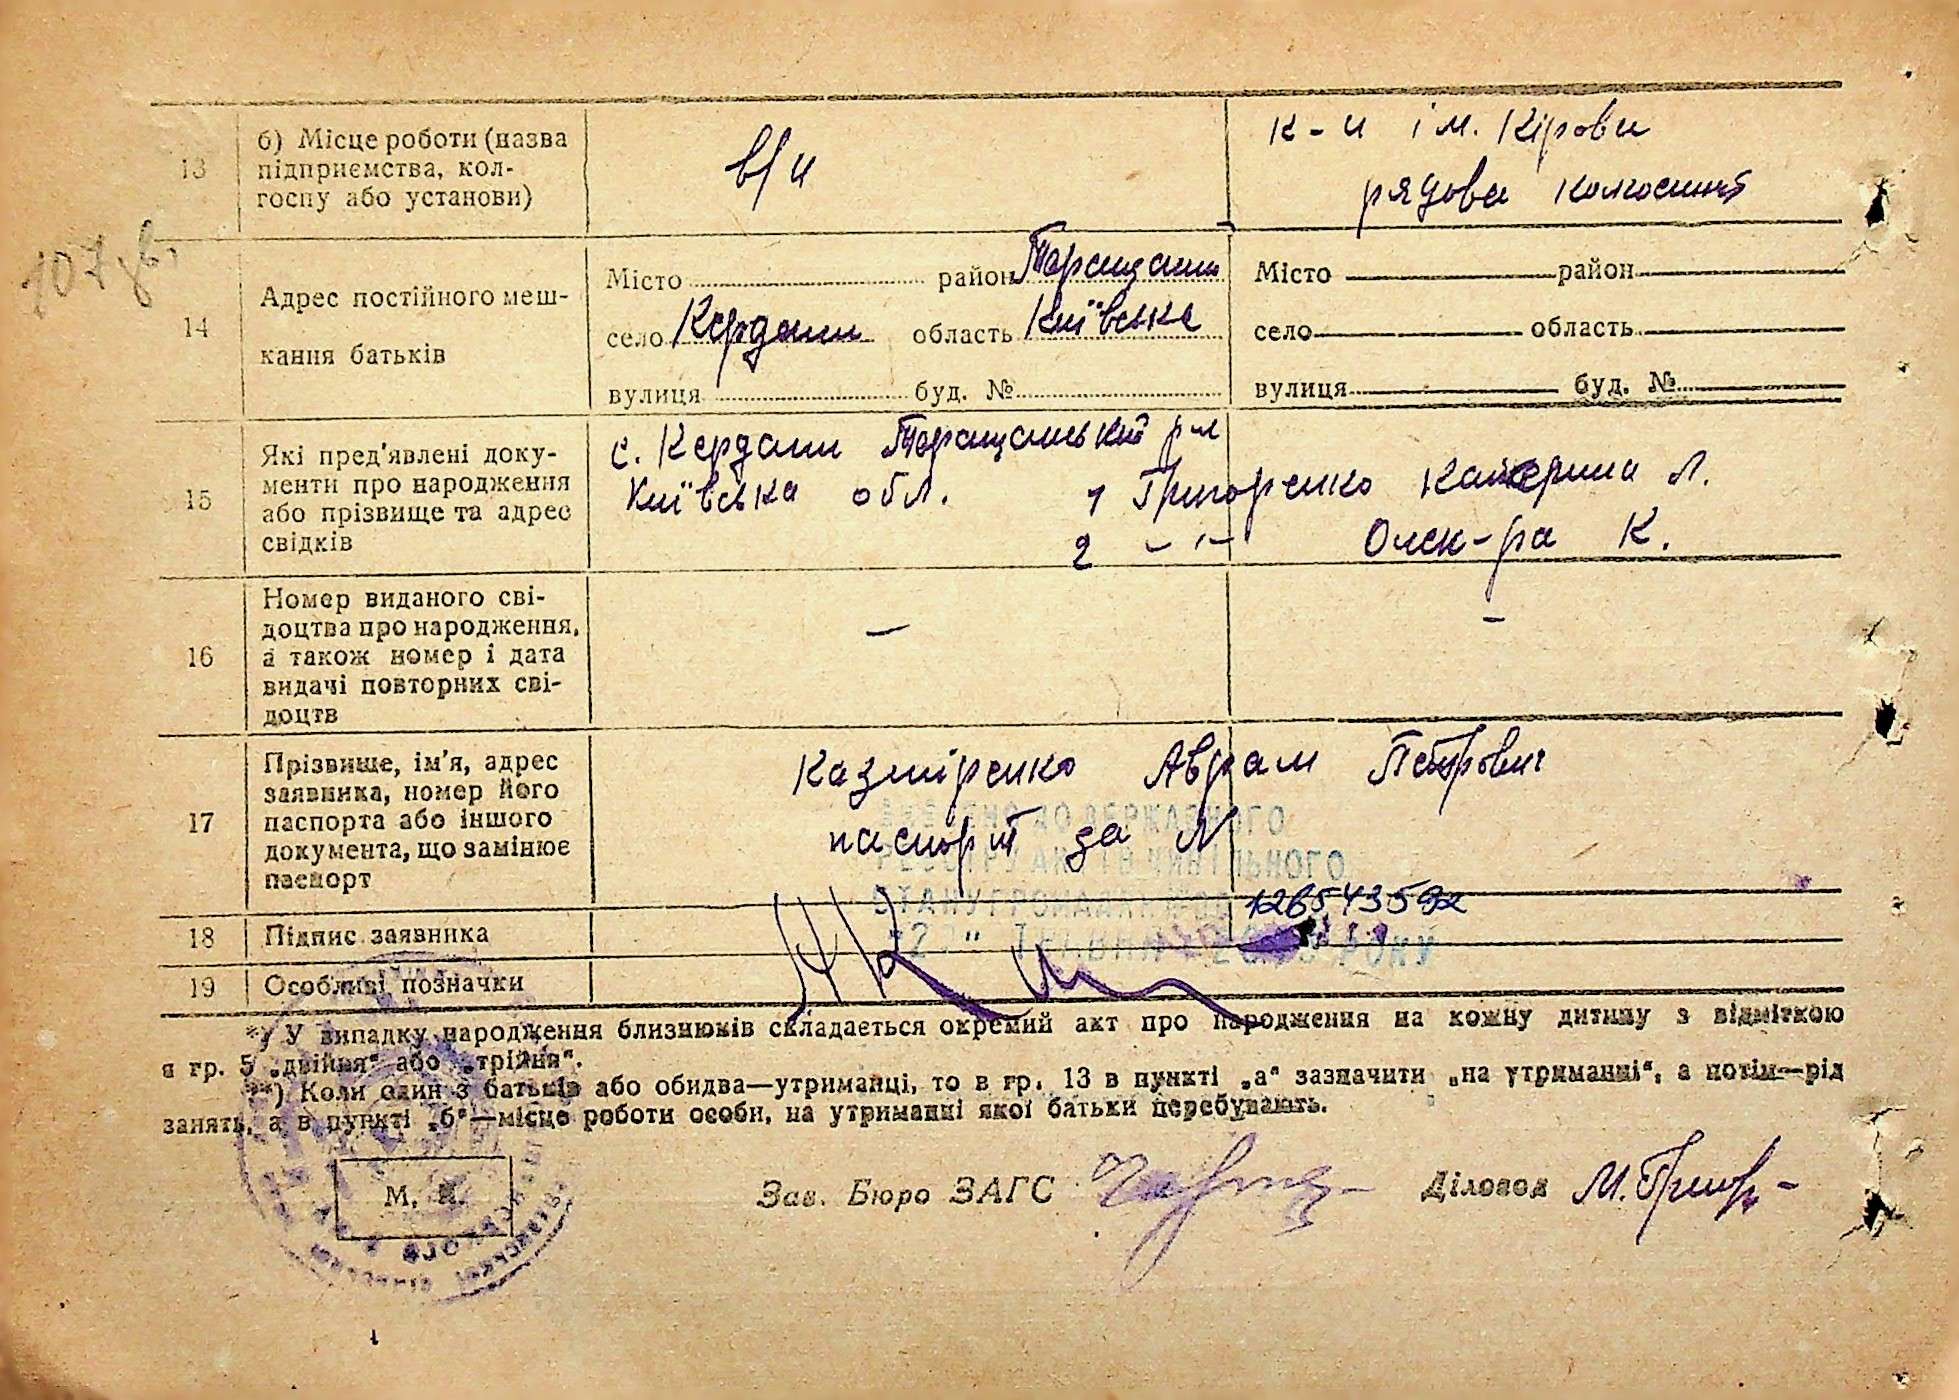 13
б) Місце роботи (назва
підприємства, кол-
госпу або установи)
в/ч
к-п ім. Кірова
рядова колгоспниця
107 зв.
14
Адрес постійного меш-
кання батьків
Місто район Таращан
село Кердани область Київська
вулиця буд. №
Місто район
село область
вулиця буд. №
15
Які пред'явлені доку-
менти про народження
або прізвище та адрес
свідків
с. Кердани Таращанський р-н
Київська обл. 1 Григоренко Катерина Л.
2 -"- Олек-ра К.
16
Номер виданого сві-
доцтва про народження,
а також номер і дата
видачі повторних сві-
доцтв
–
–
17
Прізвище, ім'я, адрес
заявника, номер його
паспорта або іншого
документа, що замінює
паспорт
Казміренко Аврам Петрович
паспорт за №
ДО ДЕРЖАВНОГО
РЕЄСТРУ АКТІВ ЦИВІЛЬНОГО
СТАНУ ГРОМАДЯН
РОКУ
18
Підпис заявника
19
Особливі позначки
*) У випадку народження близнюків складається окремий акт про народження на кожну дитину з відміткою
в гр. 5 „двійня“ або „трійня“.
**) Коли один з батьків або обидва—утриманці, то в гр. 13 в пункті „а“ зазначити „на утриманні“, а потім—рід
занять, а в пункті „б“—місце роботи особи, на утриманні якої батьки перебувають.
М. П.
Зав. Бюро ЗАГС
Діловод М. Григор-